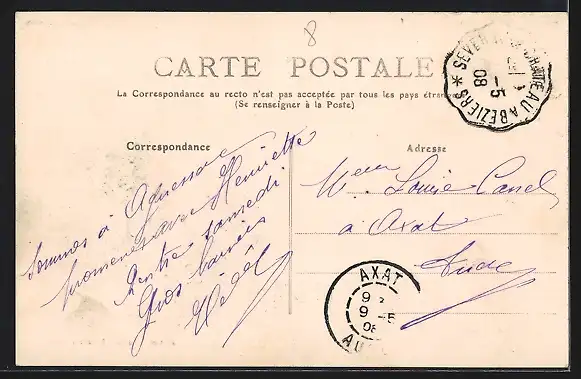 8
CARTE POSTALE
La Correspondance au recto n'est pas acceptée par tous les pays étran
(Se renseigner à la Poste)
SEVER CHATEAU A BEZIERS *
-5
08
Correspondance
Adresse
Sommes à
promener avec Henriette
Rentre samedi
Gros baisers
Louise Canel
à Axat
Aude
AXAT
9
9 -5
08
AU